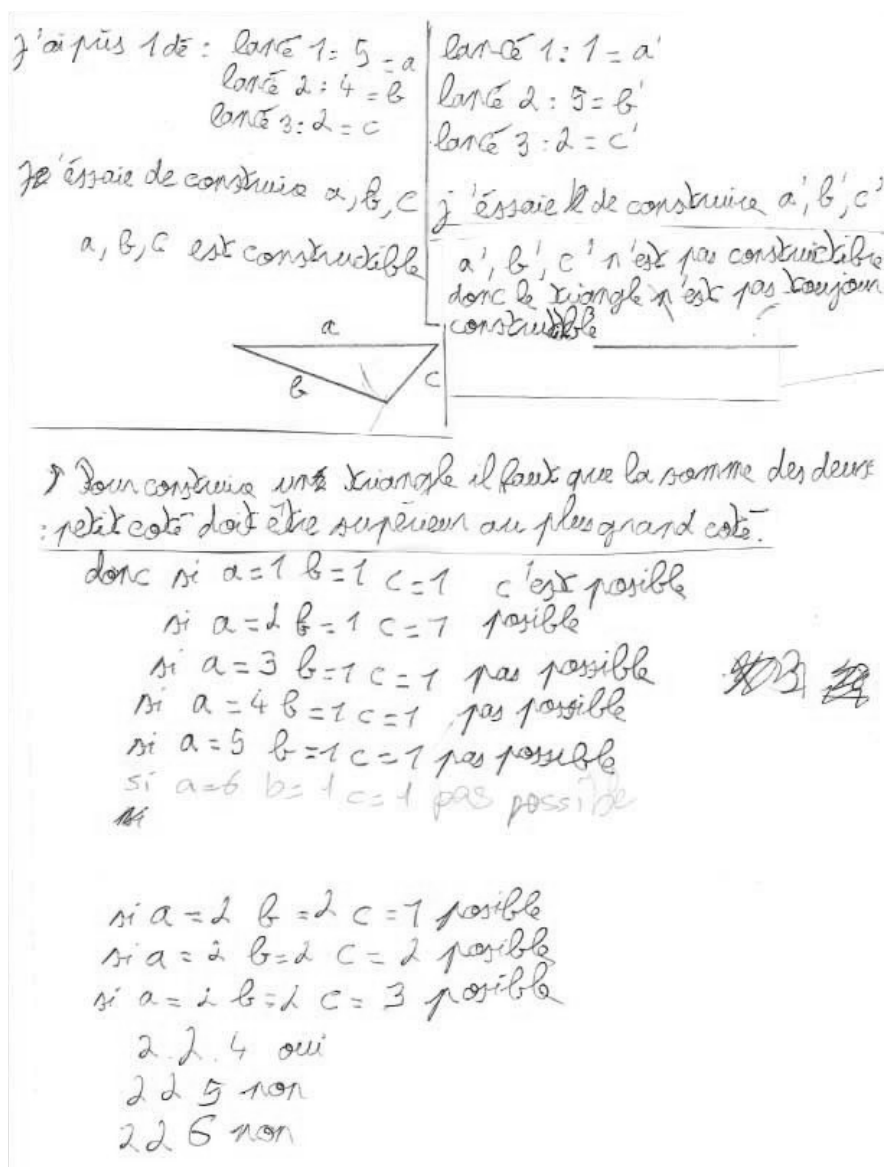 j'ai pris 1 dé : lancé 1 : 5 = a
lancé 2 : 4 = b
lancé 3 : 2 = c
je éssaie de construire a, b, c
a, b, c est constructible
a
b
c
lancé 1 : 1 = a'
lancé 2 : 5 = b'
lancé 3 : 2 = c'
j'éssaie de construire a', b', c'
a', b', c' n'est pas constructibre
donc le triangle n'est pas toujour
constructible
Pour construire un triangle il faut que la somme des deux
petit coté doit être supérieur au plus grand coté.
donc si a=1 b=1 c=1 c'est posible
si a=2 b=1 c=1 posible
si a=3 b=1 c=1 pas possible
si a=4 b=1 c=1 pas possible
si a=5 b=1 c=1 pas possible
si a=6 b=1 c=1 pas possible
si
si a=2 b=2 c=1 posible
si a=2 b=2 c=2 posible
si a=2 b=2 c=3 posible
2.2.4 oui
2 2 5 non
2 2 6 non